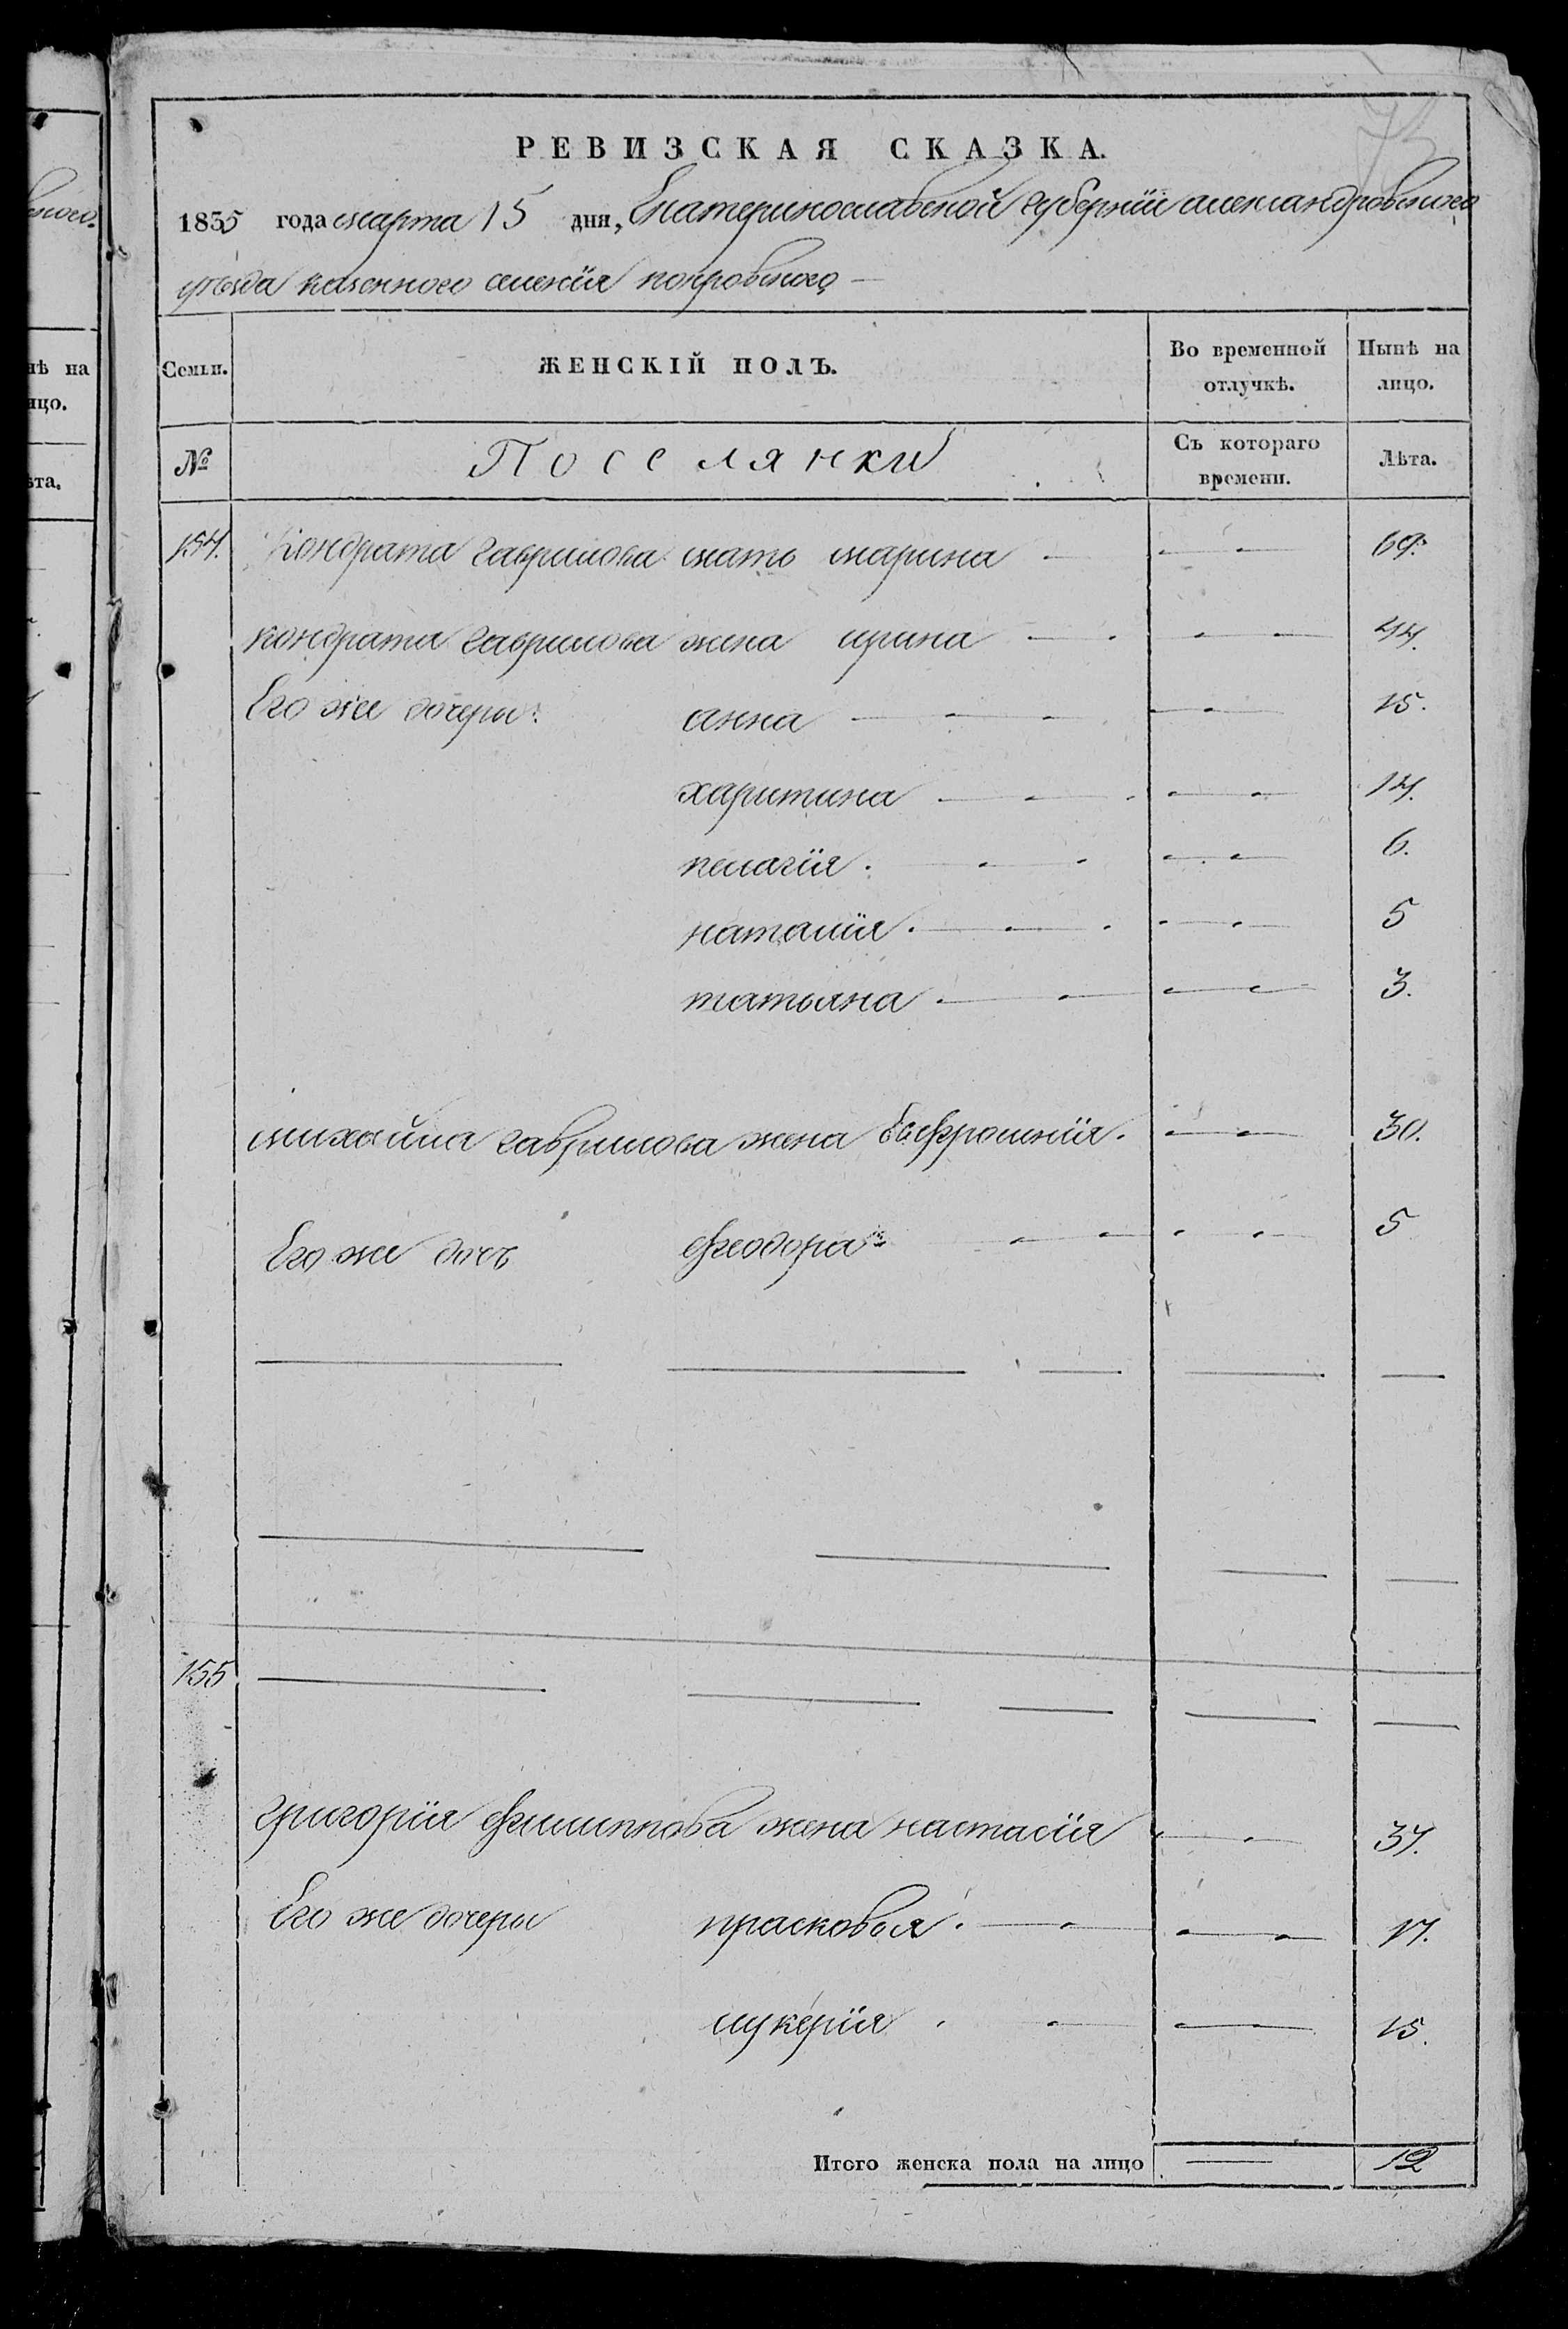 РЕВИЗСКАЯ СКАЗКА.
1835 года марта 15 дня, Екатеринославской губернии александровского
уѣзда казенного селенія покровского —
Семьи. ЖЕНСКІЙ ПОЛЪ. Во временной отлучкѣ. Нынѣ на лицо.
№ Поселянки Съ котораго времени. Лѣта.
154. Кондрата гаврилова мать марина — — 69.
кондрата гаврилова жена ирина — — 44.
Его же дочери: анна — — 15.
харитина — — 14.
пелагія. — — 6.
наталія. — — 5
татьяна — — 3.
михайла гаврилова жена Евфросинія. — 30.
Его же дочь феодора — — 5
155 — — — — —
григорія филиппова жена настасія — 37.
Его же дочери прасковья. — — 17.
лукерія — — 15.
Итого женска пола на лицо — 12
нѣ на
ицо.
ѣта.